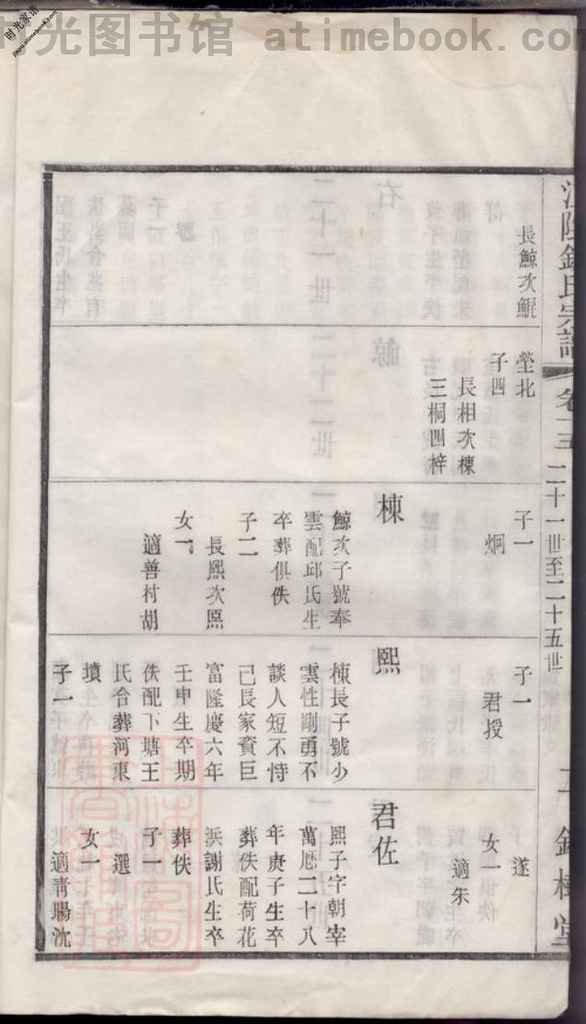 时光图书馆 atimebook.com
时光家谱
江陰錢氏宗譜
卷二十一世至二十五世
錦樓堂
長鯨次鯤
塋北
子四
長相次棟
三桐四梓
子一
炯
棟
鯨次子號奉
雲配邱氏生
卒葬俱佚
子二
長熙次照
女一
適善村胡
子一
君授
熙
棟長子號少
雲性剛勇不
談人短不恃
己長家資巨
富隆慶六年
壬申生卒期
佚配下塘王
氏合葬河東
墳
子一
遂
女一
適朱
君佐
熙子字朝宰
萬厯二十八
年庚子生卒
葬佚配荷花
浜謝氏生卒
葬佚
子一
選
女一
適靑暘沈